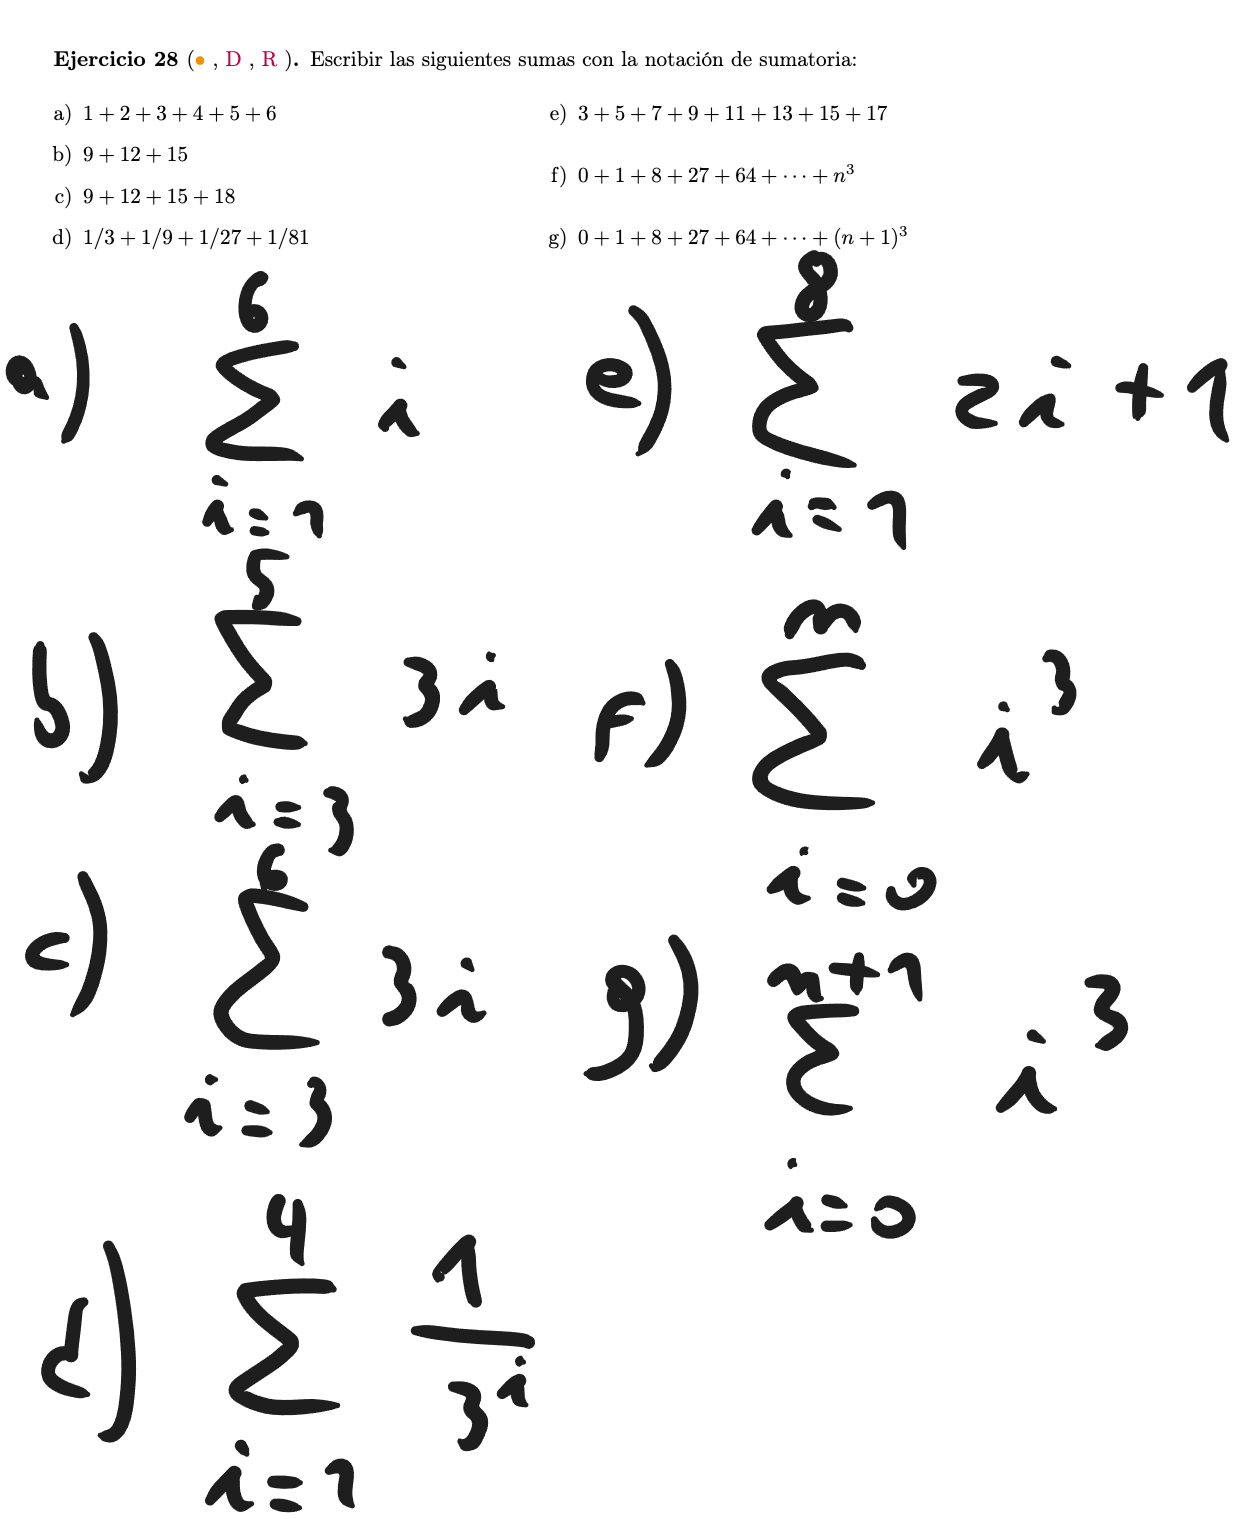 Ejercicio 28 (• , D , R ). Escribir las siguientes sumas con la notación de sumatoria:
a) 1 + 2 + 3 + 4 + 5 + 6
b) 9 + 12 + 15
c) 9 + 12 + 15 + 18
d) 1/3 + 1/9 + 1/27 + 1/81
e) 3 + 5 + 7 + 9 + 11 + 13 + 15 + 17
f) 0 + 1 + 8 + 27 + 64 + ··· + n³
g) 0 + 1 + 8 + 27 + 64 + ··· + (n + 1)³
6
a) Σ i
i = 1
5
b) Σ 3i
i = 3
6
c) Σ 3i
i = 3
4
d) Σ 1/3^i
i = 1
8
e) Σ 2i + 1
i = 1
n
f) Σ i³
i = 0
n + 1
g) Σ i³
i = 0